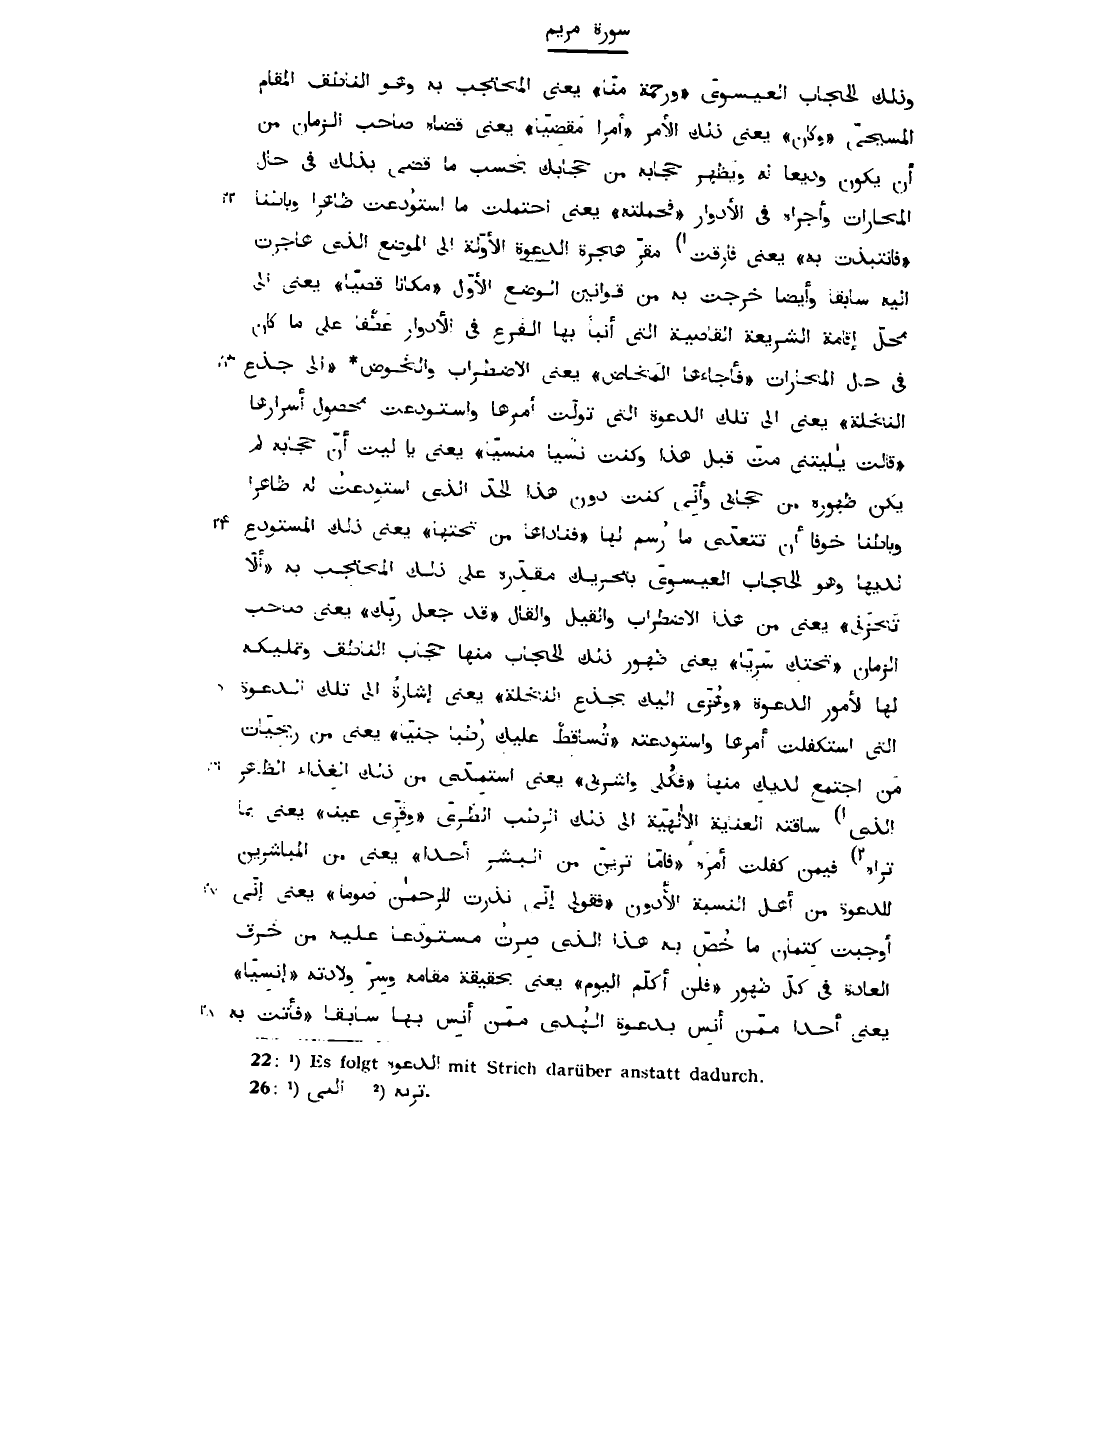 سورة مريم
وذلك الحجاب العيسوىّ «ورحمة منّا» يعنى المحتجب به وهو الناطق المقام
المسيحىّ «وكان» يعنى ذلك الأمر «أمرا مَقضيّا» يعنى قضاه صاحب الزمان من
أن يكون وديعا له ويَظهر حجابه من حجابك بحسب ما قضى بذلك فى حال
المحارات وأجراه فى الأدوار «فحملته» يعنى احتملت ما استودعت ظاهرا وباطنا ٢٢
«فانتبذت به» يعنى فارقت ¹) مقرّ هاجرة الدعوة الأوّلة الى الموضع الذى هاجرت
اليه سابقا وأيضا خرجت به من قوانين الوضع الأوّل «مكانا قصيّا» يعنى الى
محلّ إقامة الشريعة القاصية التى أنبأ بها الفرع فى الأدوار عَطْفا على ما كان
فى حال المحارات «فأجاءها المَخاض» يعنى الاضطراب والخوض* «الى جذع ٢٣
النخلة» يعنى الى تلك الدعوة التى تولّت أمرها واستودعت محصول أسرارها
«قالت يٰليتنى متّ قبل هذا وكنت نَسْيا منسيّا» يعنى يا ليت أنّ حجابه لم
يكن ظهوره من حجابى وأنّى كنت دون هذا الحدّ الذى استودعتُ له ظاهرا
وباطنا خوفا أن تتعدّى ما رُسم لها «فناداها من تحتها» يعنى ذلك المستودع ٢۴
لديها وهو الحجاب العيسوىّ بتحريك مقدّره على ذلك المحتجب به «ألّا
تَحزنى» يعنى من هذا الاضطراب والقيل والقال «قد جعل ربّك» يعنى صاحب
الزمان «تحتك سَريّا» يعنى ظهور ذلك الحجاب منها حجاب الناطق وتمليكه
لها لأمور الدعوة «وهُزّى اليك بجذع النخلة» يعنى إشارةً الى تلك الدعوة
التى استكفلت أمرها واستودعته «تُساقطْ عليك رُطَبا جنيّا» يعنى من ريحيّات
مَن اجتمع لديك منها «فكُلى واشربى» يعنى استمِدّى من ذلك الغذاء الظاهر ٢٦
الذى ¹) ساقته العناية الالٰهيّة الى ذلك الرطب الطَرىّ «وقَرّى عينا» يعنى بما
تراه ²) فيمن كفلت أمرَه «فامّا ترَينّ من البشر أحدا» يعنى من المباشرين
للدعوة من أهل النسبة الأدون «فقولى إنّى نذرت للرحمٰن صَوما» يعنى إنّى ٢٧
أوجبت كتمان ما خُصّ به هذا الذى صِرتُ مستودَعا عليه من خرق
العادة فى كلّ ظهور «فلن أكلّم اليوم» يعنى بحقيقة مقامه وسِرّ ولادته «إنسيّا»
يعنى أحدا ممّن أنِس بدعوة الهُدى ممّن أنِس بها سابقا «فأتت به ٢٨
22: ¹) Es folgt الدعوة mit Strich darüber anstatt dadurch.
26: ¹) التى ²) تريه.